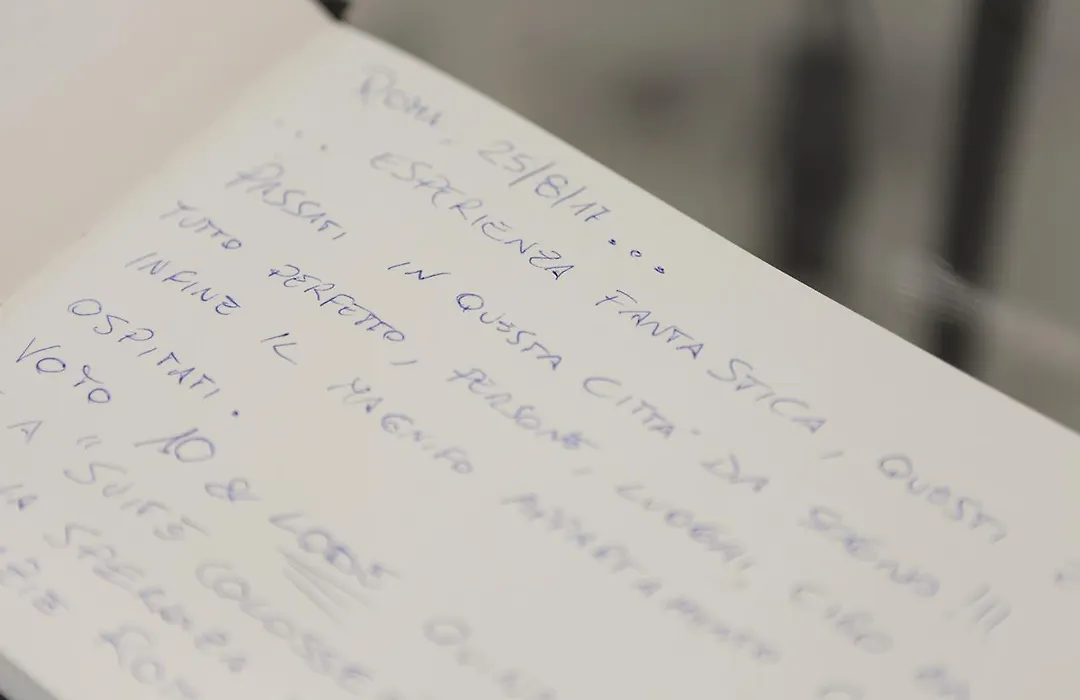 ROMA, 25/8/17...
... ESPERIENZA FANTASTICA, QUESTI
PASSATI IN QUESTA CITTA' DA SOGNO!!!
TUTTO PERFETTO, PERSONE, LUOGHI, CIBO
INFINE IL MAGNIFO APPARTAMENTO
OSPITATI.
VOTO 10 & LODE
A "SUITE COLOSSE
LA SPERANZA
ZIE ROM